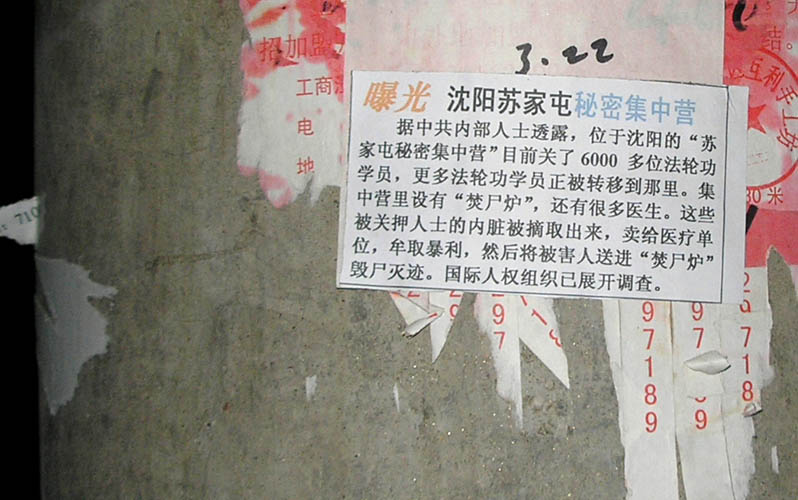 3.22
招加盟
结。
工商
电
地
互利手工坊
30 米
曝光 沈阳苏家屯秘密集中营
据中共内部人士透露，位于沈阳的“苏
家屯秘密集中营”目前关了 6000 多位法轮功
学员，更多法轮功学员正被转移到那里。集
中营里设有“焚尸炉”，还有很多医生。这些
被关押人士的内脏被摘取出来，卖给医疗单
位，牟取暴利，然后将被害人送进“焚尸炉”
毁尸灭迹。国际人权组织已展开调查。
710
97189
97189
26718